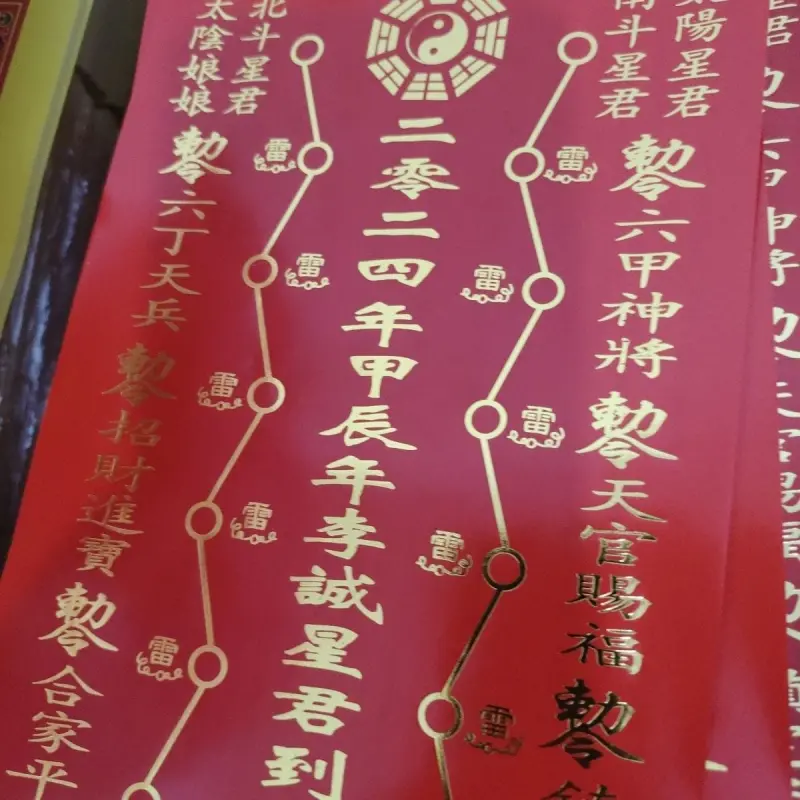 太陽星君
南斗星君
勅令六甲神將勅令天官賜福勅令
雷
雷
雷
雷
雷
二零二四年甲辰年李誠星君到
雷
雷
雷
雷
雷
北斗星君
太陰娘娘
勅令六丁天兵勅令招財進寶勅令合家平